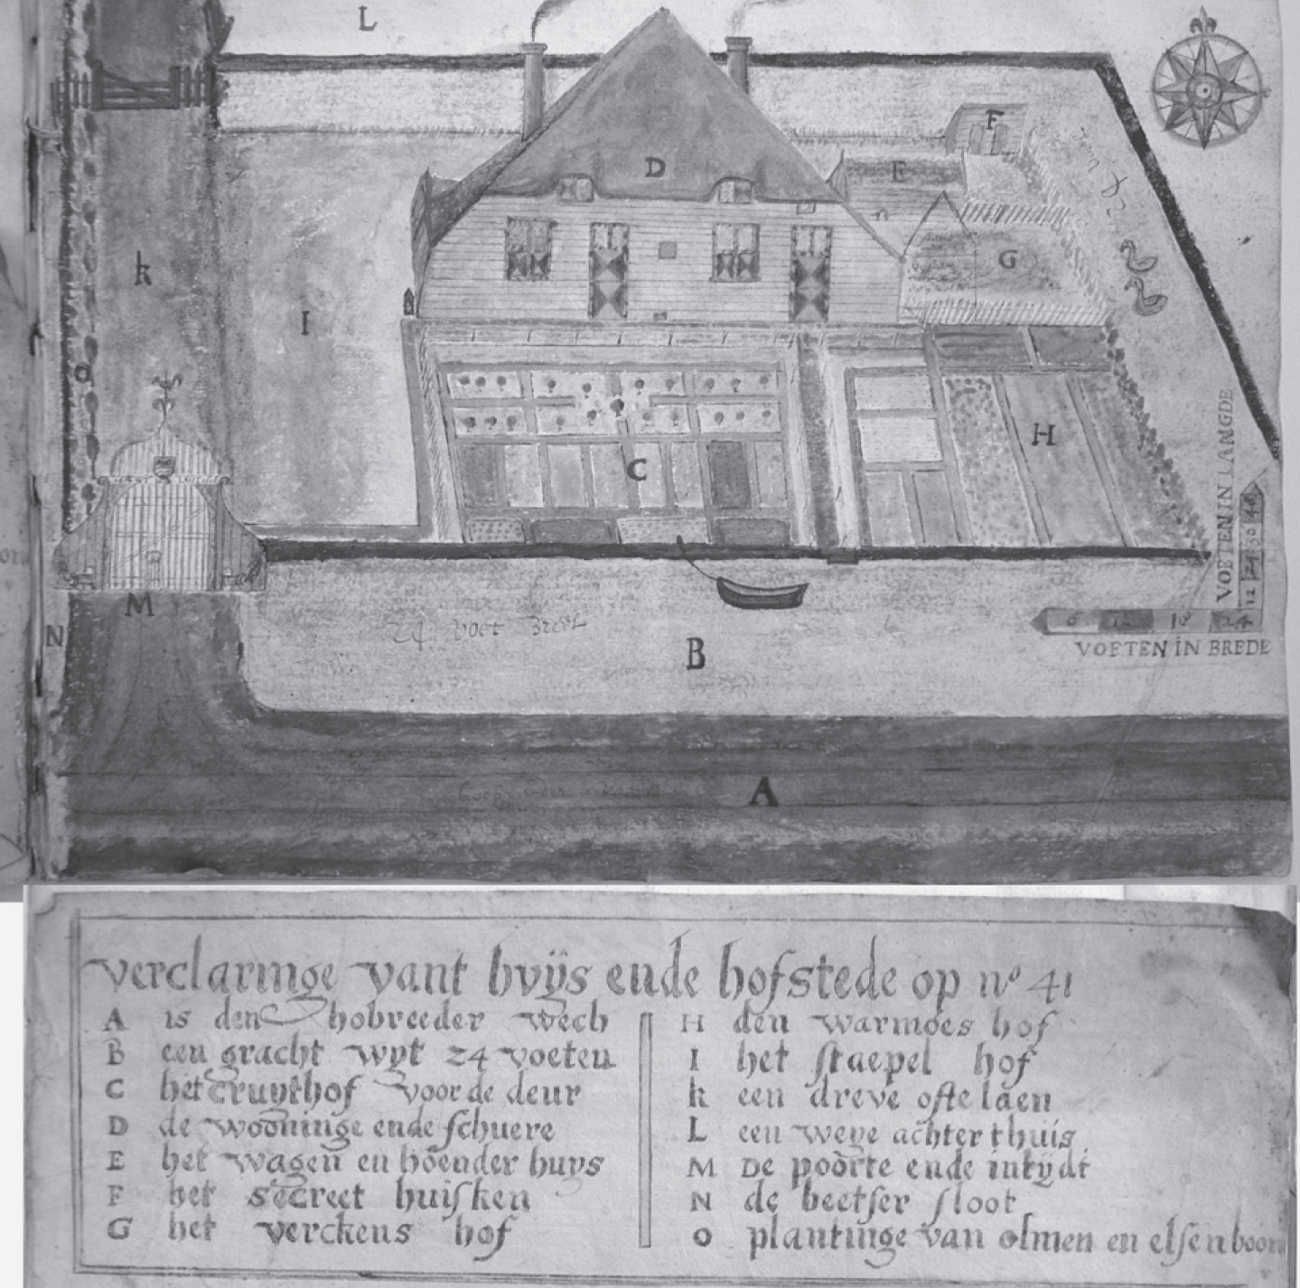 L
F
D
E
k
G
I
O
C
H
VOETEN IN LANGDE
12 24 36 48
M
6 12 18 24
24 voet breet
N
VOETEN IN BREDE
B
A
verclaringe vant huijs ende hofstede op no 41
A is den hobreeder wech
B een gracht wyt 24 voeten
C het cruythof voor de deur
D de wooninge ende schuere
E het wagen en hoender huys
F het secreet huisken
G het verckens hof
H den warmoes hof
I het staepel hof
k een dreve ofte laen
L een weye achter thuis
M De poorte ende inrydt
N de beetser sloot
O plantinge van olmen en elsenboom